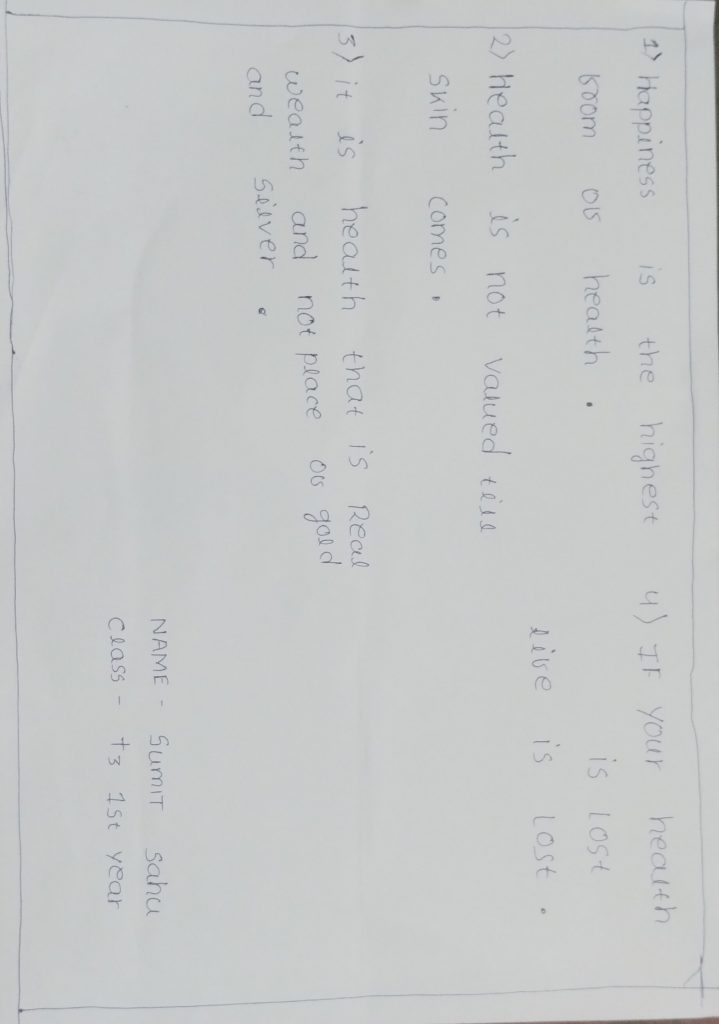 1) Happiness is the highest
from of health.
2) Health is not valued till
skin comes.
3) it is health that is Real
wealth and not place of gold
and silver.
4) IF your health
is lost
live is lost.
NAME - Sumit sahu
Class - t3 1st year